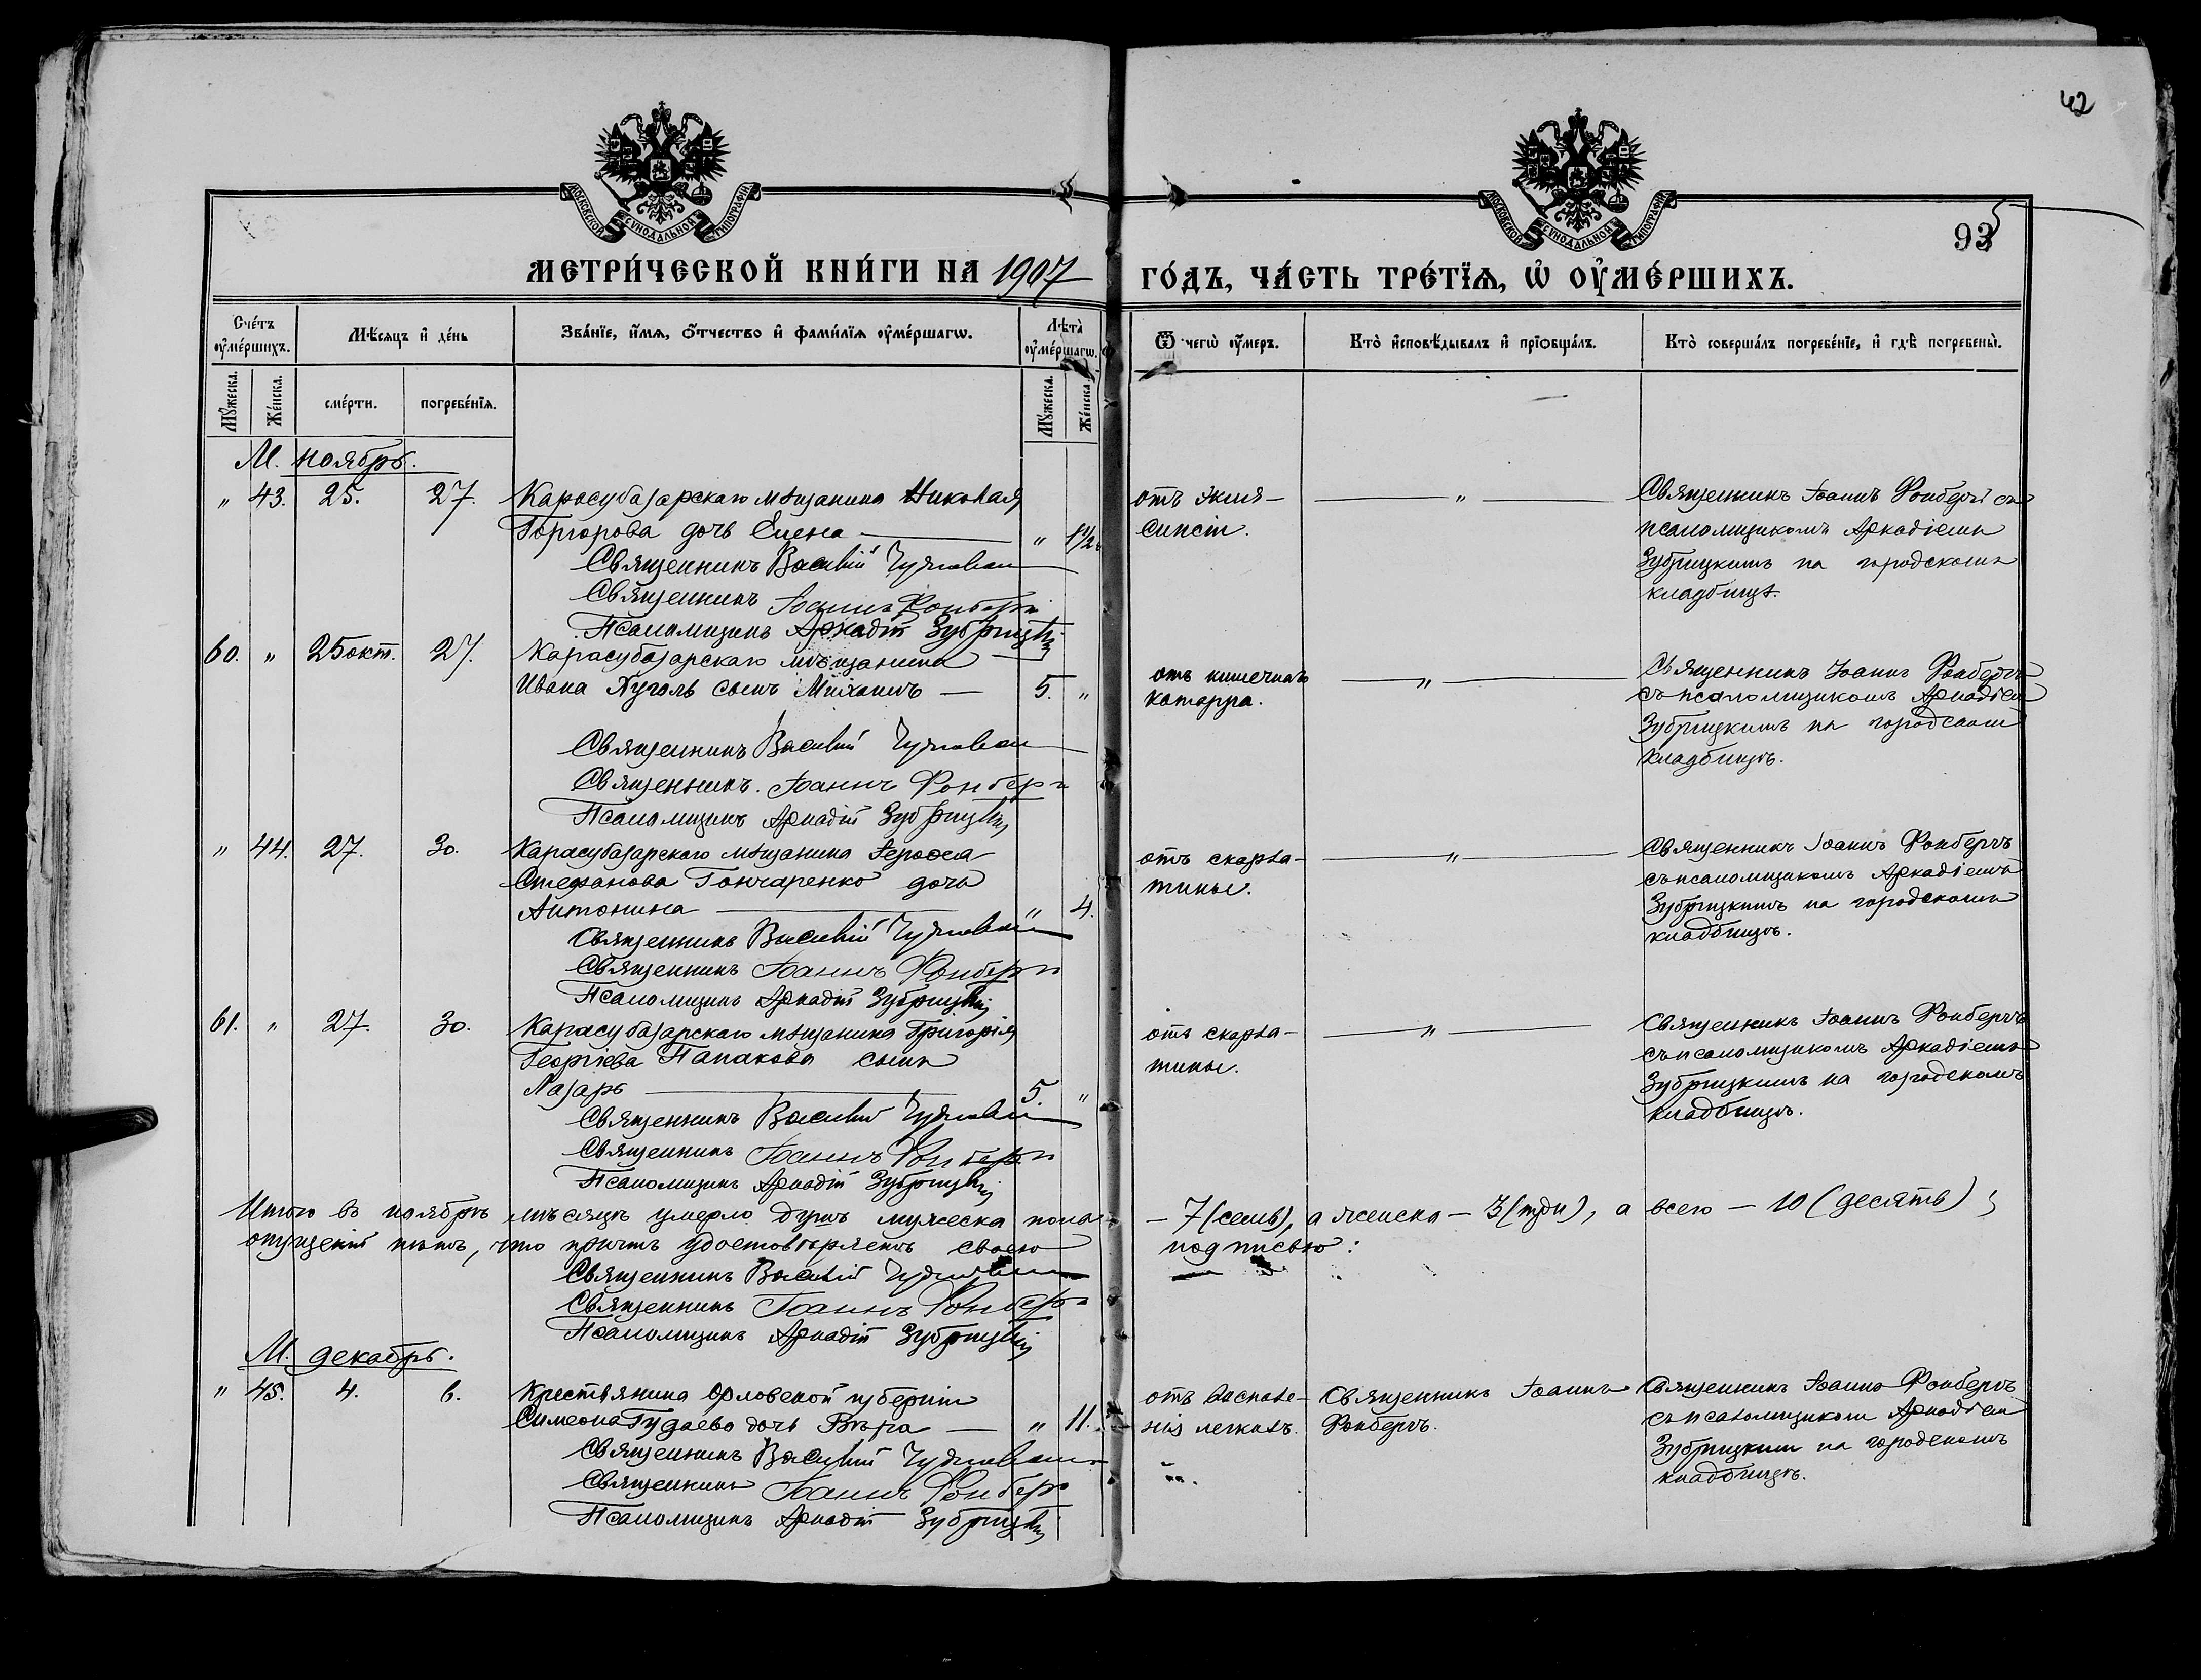 42
МОСКОВСКОЙ СѴНОДАЛЬНОЙ ТИПОГРАФІИ
МОСКОВСКОЙ СѴНОДАЛЬНОЙ ТИПОГРАФІИ
93
МЕТРИ́ЧЕСКОЙ КНИ́ГИ НА 1907 ГО́ДЪ, ЧА́СТЬ ТРЕ́ТЇѦ, Ѡ҆ ОУ҆МЕ́РШИХЪ.
Сче́тъ оу҆ме́ршихъ.
Мѣ́сяцъ и҆ де́нь
Зва́нїе, и҆́мѧ, ѻ҆́тчество и҆ фами́лїѧ оу҆ме́ршагѡ.
Лѣ́та оу҆ме́ршагѡ.
Ѿ чегѡ̀ оу҆́меръ.
Кто̀ и҆сповѣ́дывалъ и҆ прїѻбща́лъ.
Кто̀ соверша́лъ погребе́нїе, и҆ гдѣ̀ погребены̀.
Му́жеска.
Же́нска.
сме́рти.
погребе́нїѧ.
Му́жеска.
Же́нска.
М. ноябрь.
" 43. 25. 27. Карасубазарскаго мѣщанина Николая
дочь Елена " 1 1/2
Священникъ Василій
Священникъ Іоаннъ Фонбергъ
Псаломщикъ Аркадій Зубрицкій
отъ
Священникъ Іоаннъ Фонбергъ съ
псаломщикомъ Аркадіемъ
Зубрицкимъ на городскомъ
кладбищѣ.
60. " 25 окт. 27. Карасубазарскаго мѣщанина
Ивана сынъ Михаилъ — 5. "
Священникъ Василій
Священникъ Іоаннъ Фонбергъ
Псаломщикъ Аркадій Зубрицкій
отъ кишечнаго
катарра.
"
Священникъ Іоаннъ Фонбергъ
съ псаломщикомъ Аркадіемъ
Зубрицкимъ на городскомъ
кладбищѣ.
" 44. 27. 30. Карасубазарскаго мѣщанина
Стефанова Гончаренко дочь
Антонина " 4.
Священникъ Василій
Священникъ Іоаннъ Фонбергъ
Псаломщикъ Аркадій Зубрицкій
отъ скарла-
тины.
"
Священникъ Іоаннъ Фонбергъ
съ псаломщикомъ Аркадіемъ
Зубрицкимъ на городскомъ
кладбищѣ.
61. " 27. 30. Карасубазарскаго мѣщанина Григорія
Георгіева Папакова сынъ
Лазарь 5. "
Священникъ Василій
Священникъ Іоаннъ Фонбергъ
Псаломщикъ Аркадій Зубрицкій
отъ скарла-
тины.
"
Священникъ Іоаннъ Фонбергъ
съ псаломщикомъ Аркадіемъ
Зубрицкимъ на городскомъ
кладбищѣ.
Итого въ ноябрѣ мѣсяцѣ умерло душъ мужеска пола — 7 (семь), а женска — 3 (три), а всего — 10 (десять);
опущеній нѣтъ, что причтъ удостовѣряетъ своею подписью:
Священникъ Василій
Священникъ Іоаннъ Фонбергъ
Псаломщикъ Аркадій Зубрицкій
М. декабрь.
" 45. 4. 6. Крестьянина Орловской губерніи
Симеона Гудаева дочь Вѣра — " 11.
Священникъ Василій
Священникъ Іоаннъ Фонбергъ
Псаломщикъ Аркадій Зубрицкій
отъ воспале-
нія легкихъ.
Священникъ Іоаннъ
Фонбергъ.
Священникъ Іоаннъ Фонбергъ
съ псаломщикомъ Аркадіемъ
Зубрицкимъ на городскомъ
кладбищѣ.